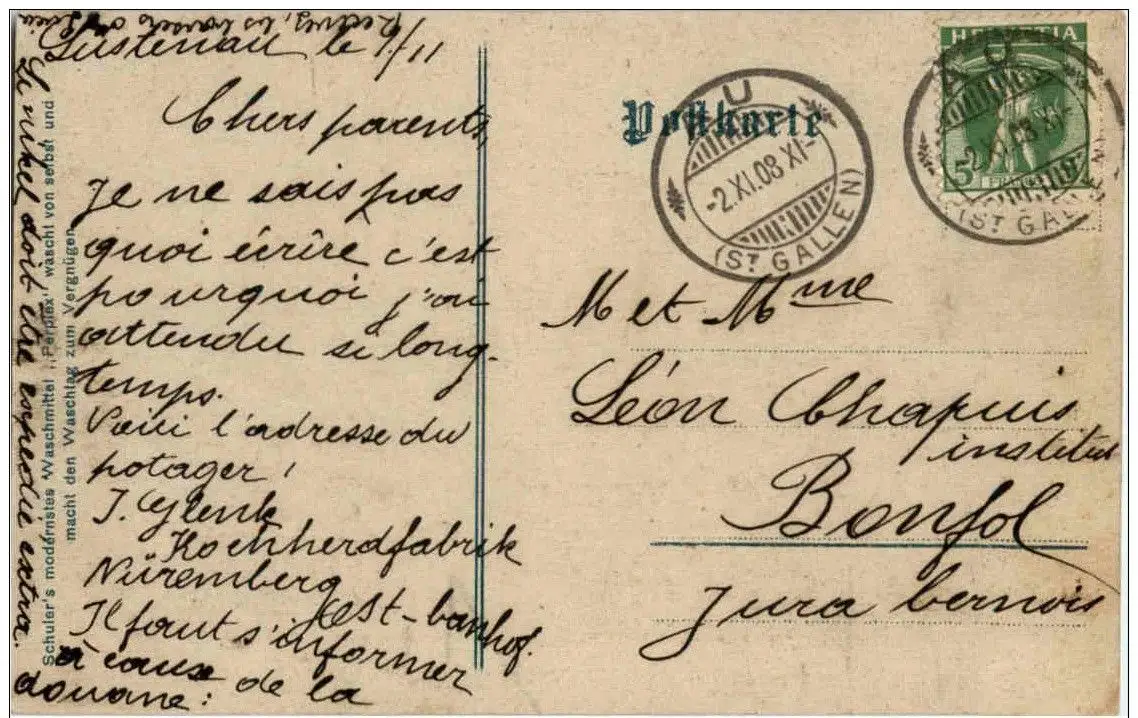 Lustenau le 1/11
Chers parents,
Je ne sais pas
quoi écrire c'est
pourquoi j'ai
attendu si long-
temps.
Voici l'adresse du
potager :
J. Glenk
Kochherdfabrik
Nüremberg
Ost-banhof.
Il faut s'informer
à cause de la
douane :
Le nikel doit être expédié extra.
les
Schuler's modernstes Waschmittel „Perplex" wascht von selbst und
macht den Waschtag zum Vergnügen.
Postkarte
AU
-2.XI.08 XI-
(ST GALLEN)
HELVETIA
5
AU
-2.XI.08 XI-
(ST GALLEN)
M et Mme
Léon Chapuis
institut
Bonfol
Jura bernois